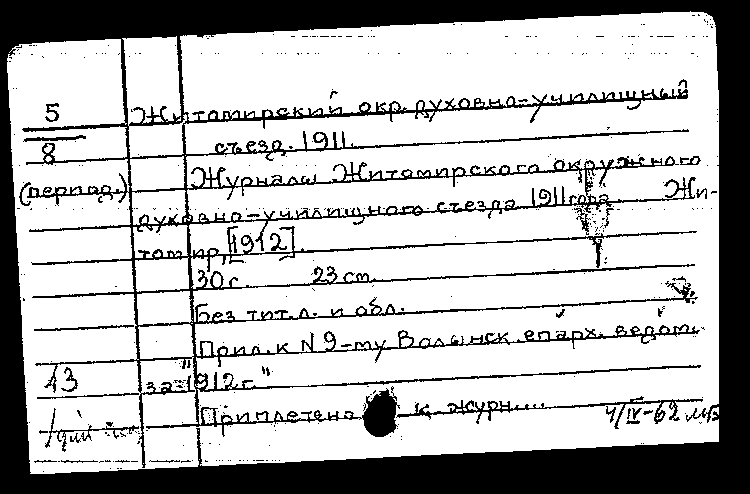 5 Житомирский окр. духовно-училищный
8 съезд. 1911.
(период.) Журналы Житомирского окружного
духовно-училищного съезда 1911 года. Жи-
томир, [1912].
30 с. 23 см.
Без тит. л. и обл.
Прил. к N 9-му Волынск. епарх. ведом.
13 за "1912 г."
Приплетено к журн....
4/IV-62